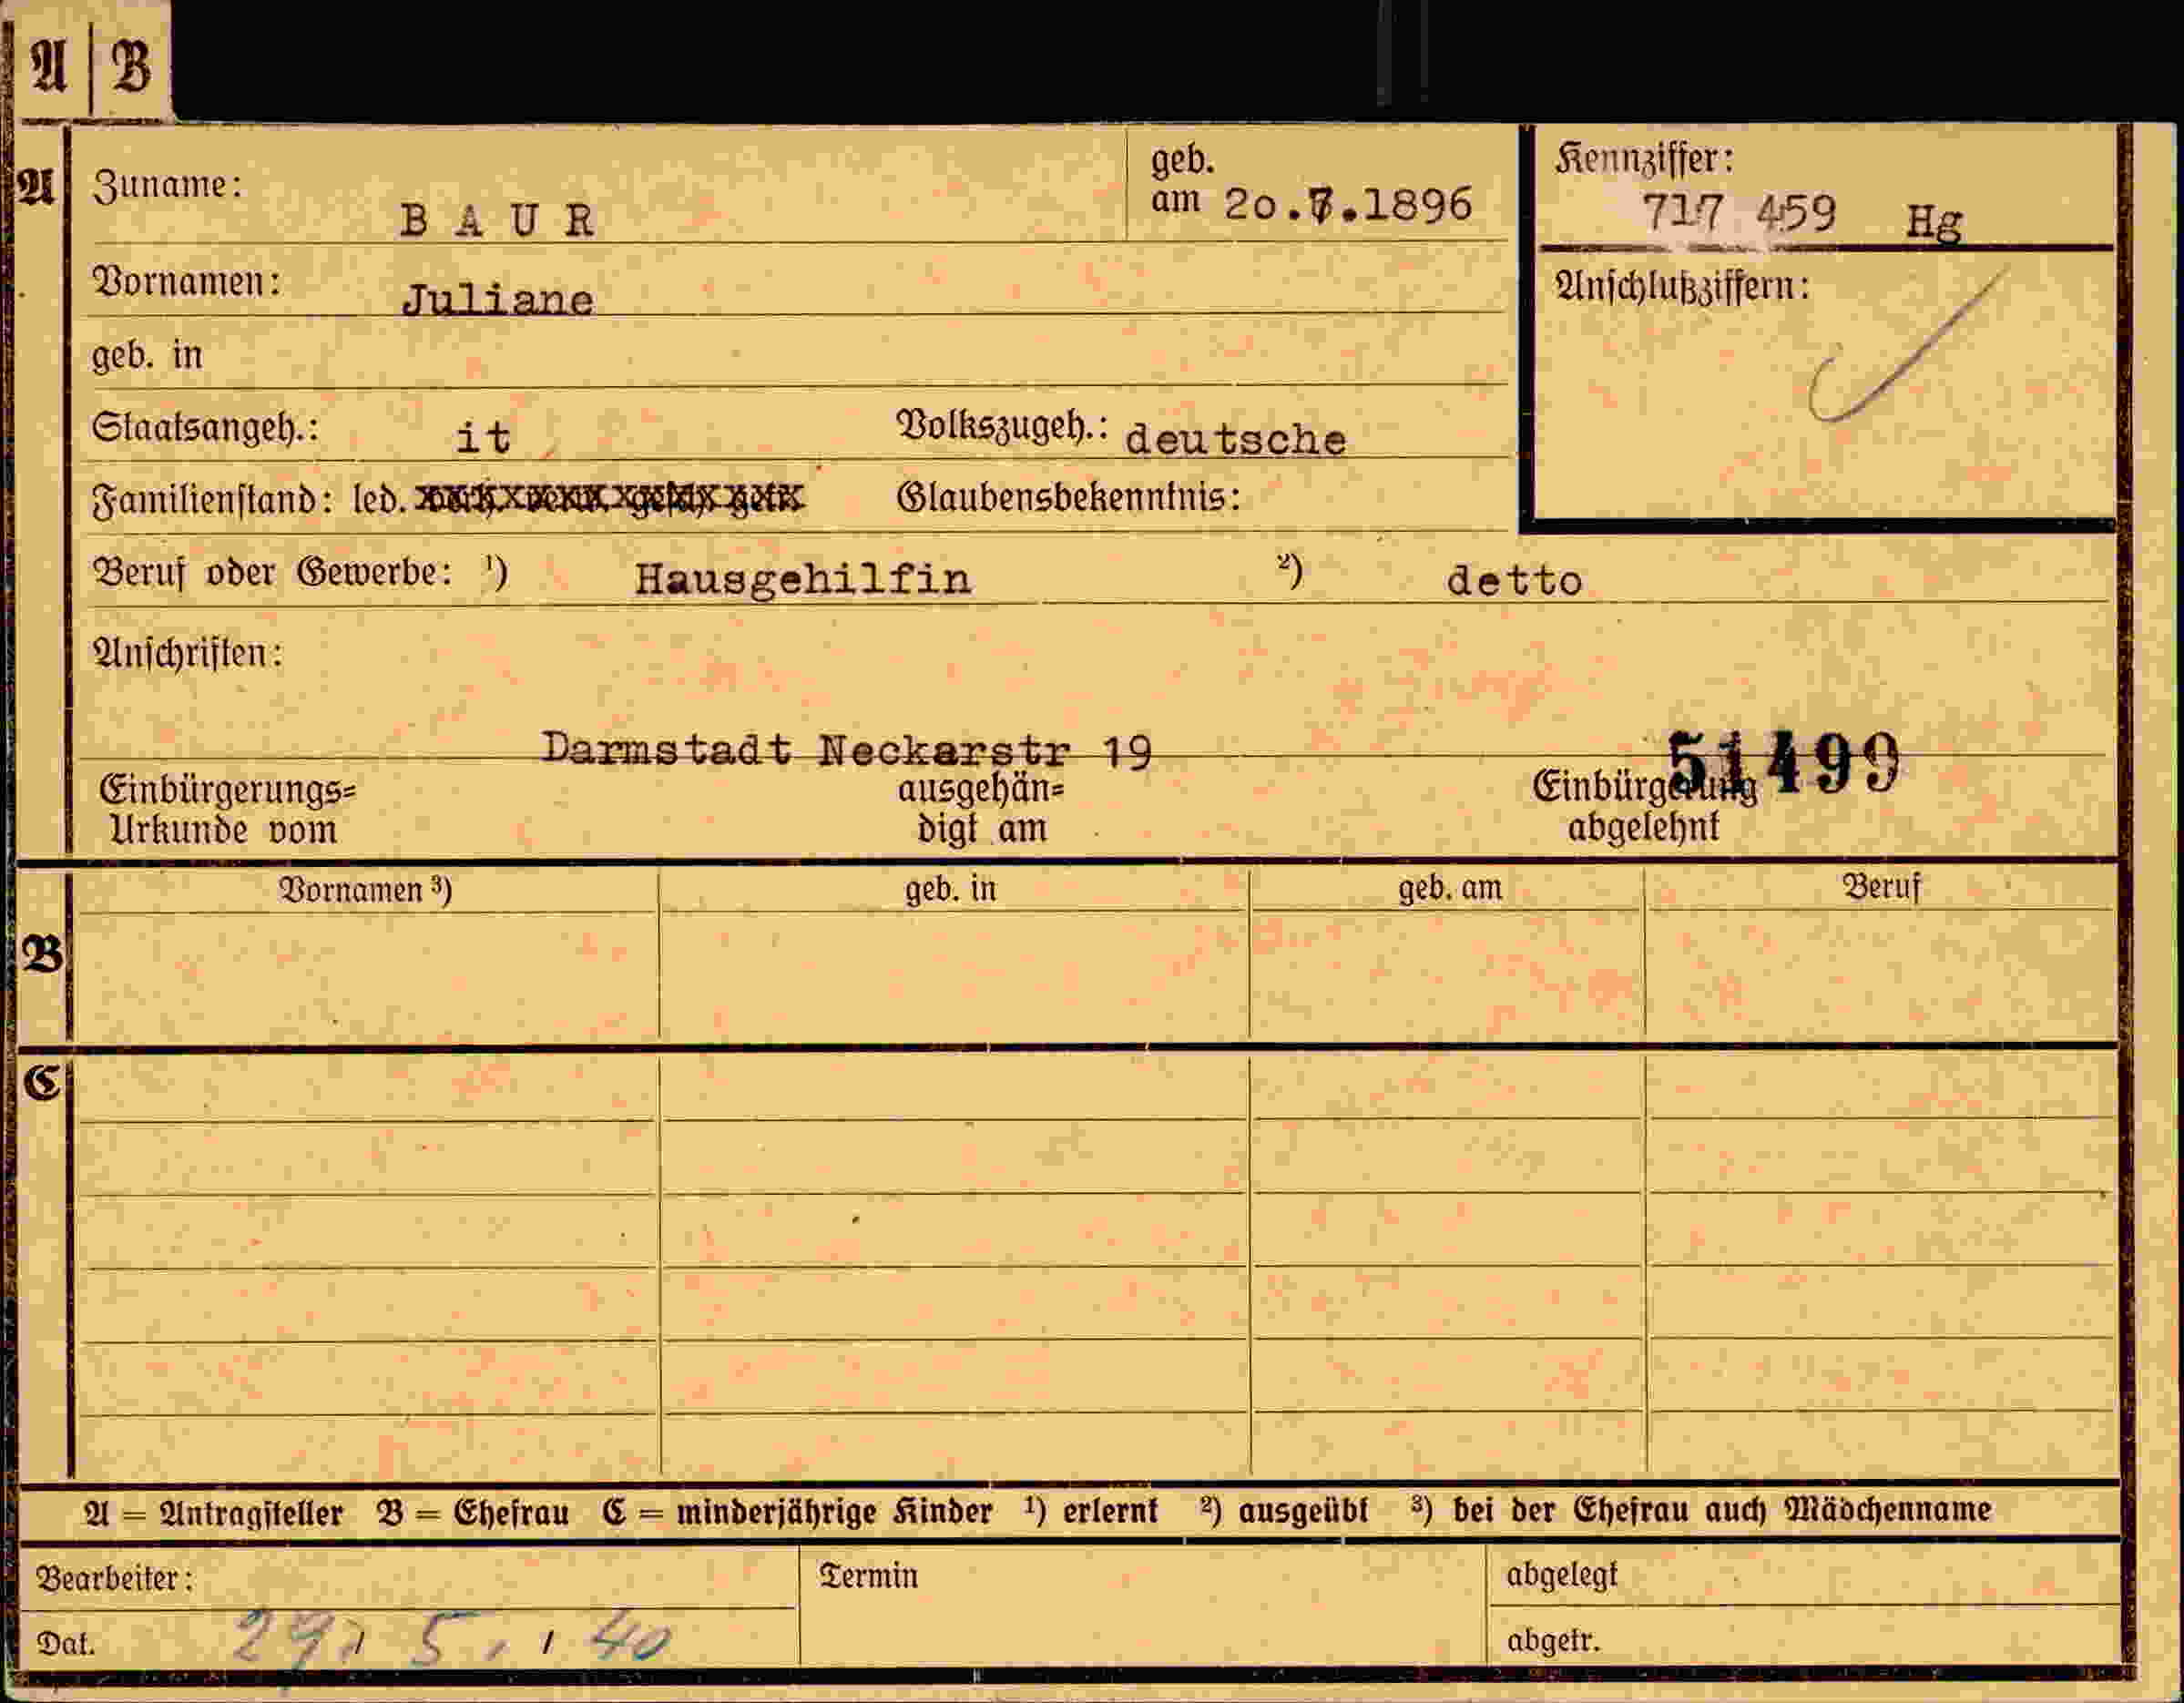 A | B
A
Zuname: BAUR
geb. am 20.7.1896
Kennziffer: 717 459 Hg
Vornamen: Juliane
Anschlußziffern:
geb. in
Staatsangeh.: it Volkszugeh.: deutsche
Familienstand: led. Glaubensbekenntnis:
Beruf oder Gewerbe: ¹) Hausgehilfin ²) detto
Anschriften:
Darmstadt Neckarstr 19
51499
Einbürgerungs= ausgehän= Einbürgerung
Urkunde vom digt am abgelehnt
B
Vornamen ³) geb. in geb. am Beruf
C
A = Antragsteller B = Ehefrau C = minderjährige Kinder ¹) erlernt ²) ausgeübt ³) bei der Ehefrau auch Mädchenname
Bearbeiter: Termin abgelegt
Dat. 29. 5. 40 abgetr.